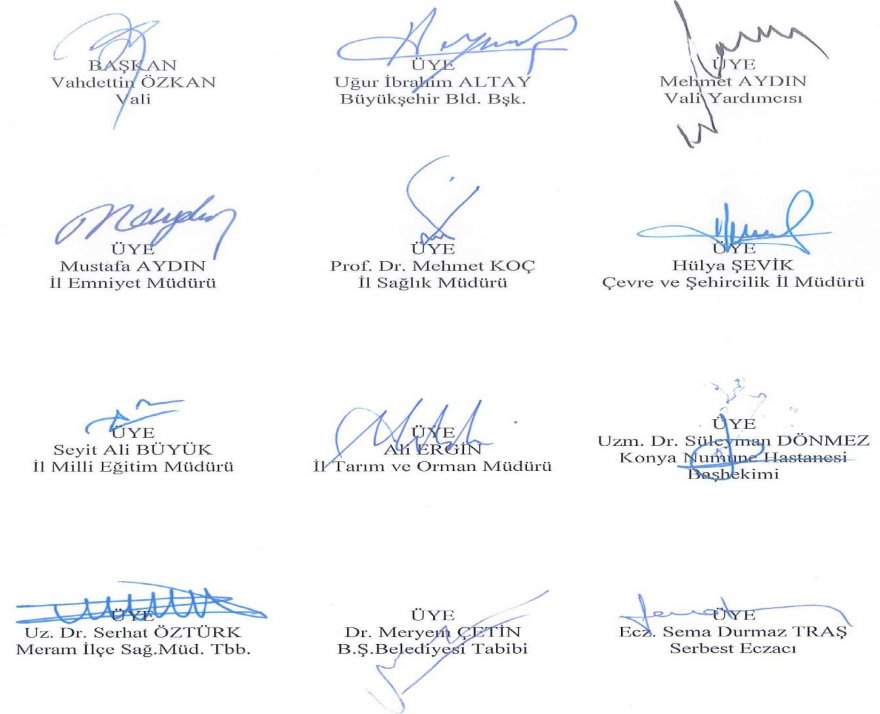 BAŞKAN
Vahdettin ÖZKAN
Vali
ÜYE
Uğur İbrahim ALTAY
Büyükşehir Bld. Bşk.
ÜYE
Mehmet AYDIN
Vali Yardımcısı
ÜYE
Mustafa AYDIN
İl Emniyet Müdürü
ÜYE
Prof. Dr. Mehmet KOÇ
İl Sağlık Müdürü
ÜYE
Hülya ŞEVİK
Çevre ve Şehircilik İl Müdürü
ÜYE
Seyit Ali BÜYÜK
İl Milli Eğitim Müdürü
ÜYE
Ali ERGİN
İl Tarım ve Orman Müdürü
ÜYE
Uzm. Dr. Süleyman DÖNMEZ
Konya Numune Hastanesi
Başhekimi
ÜYE
Uz. Dr. Serhat ÖZTÜRK
Meram İlçe Sağ.Müd. Tbb.
ÜYE
Dr. Meryem ÇETİN
B.Ş.Belediyesi Tabibi
ÜYE
Ecz. Sema Durmaz TRAŞ
Serbest Eczacı